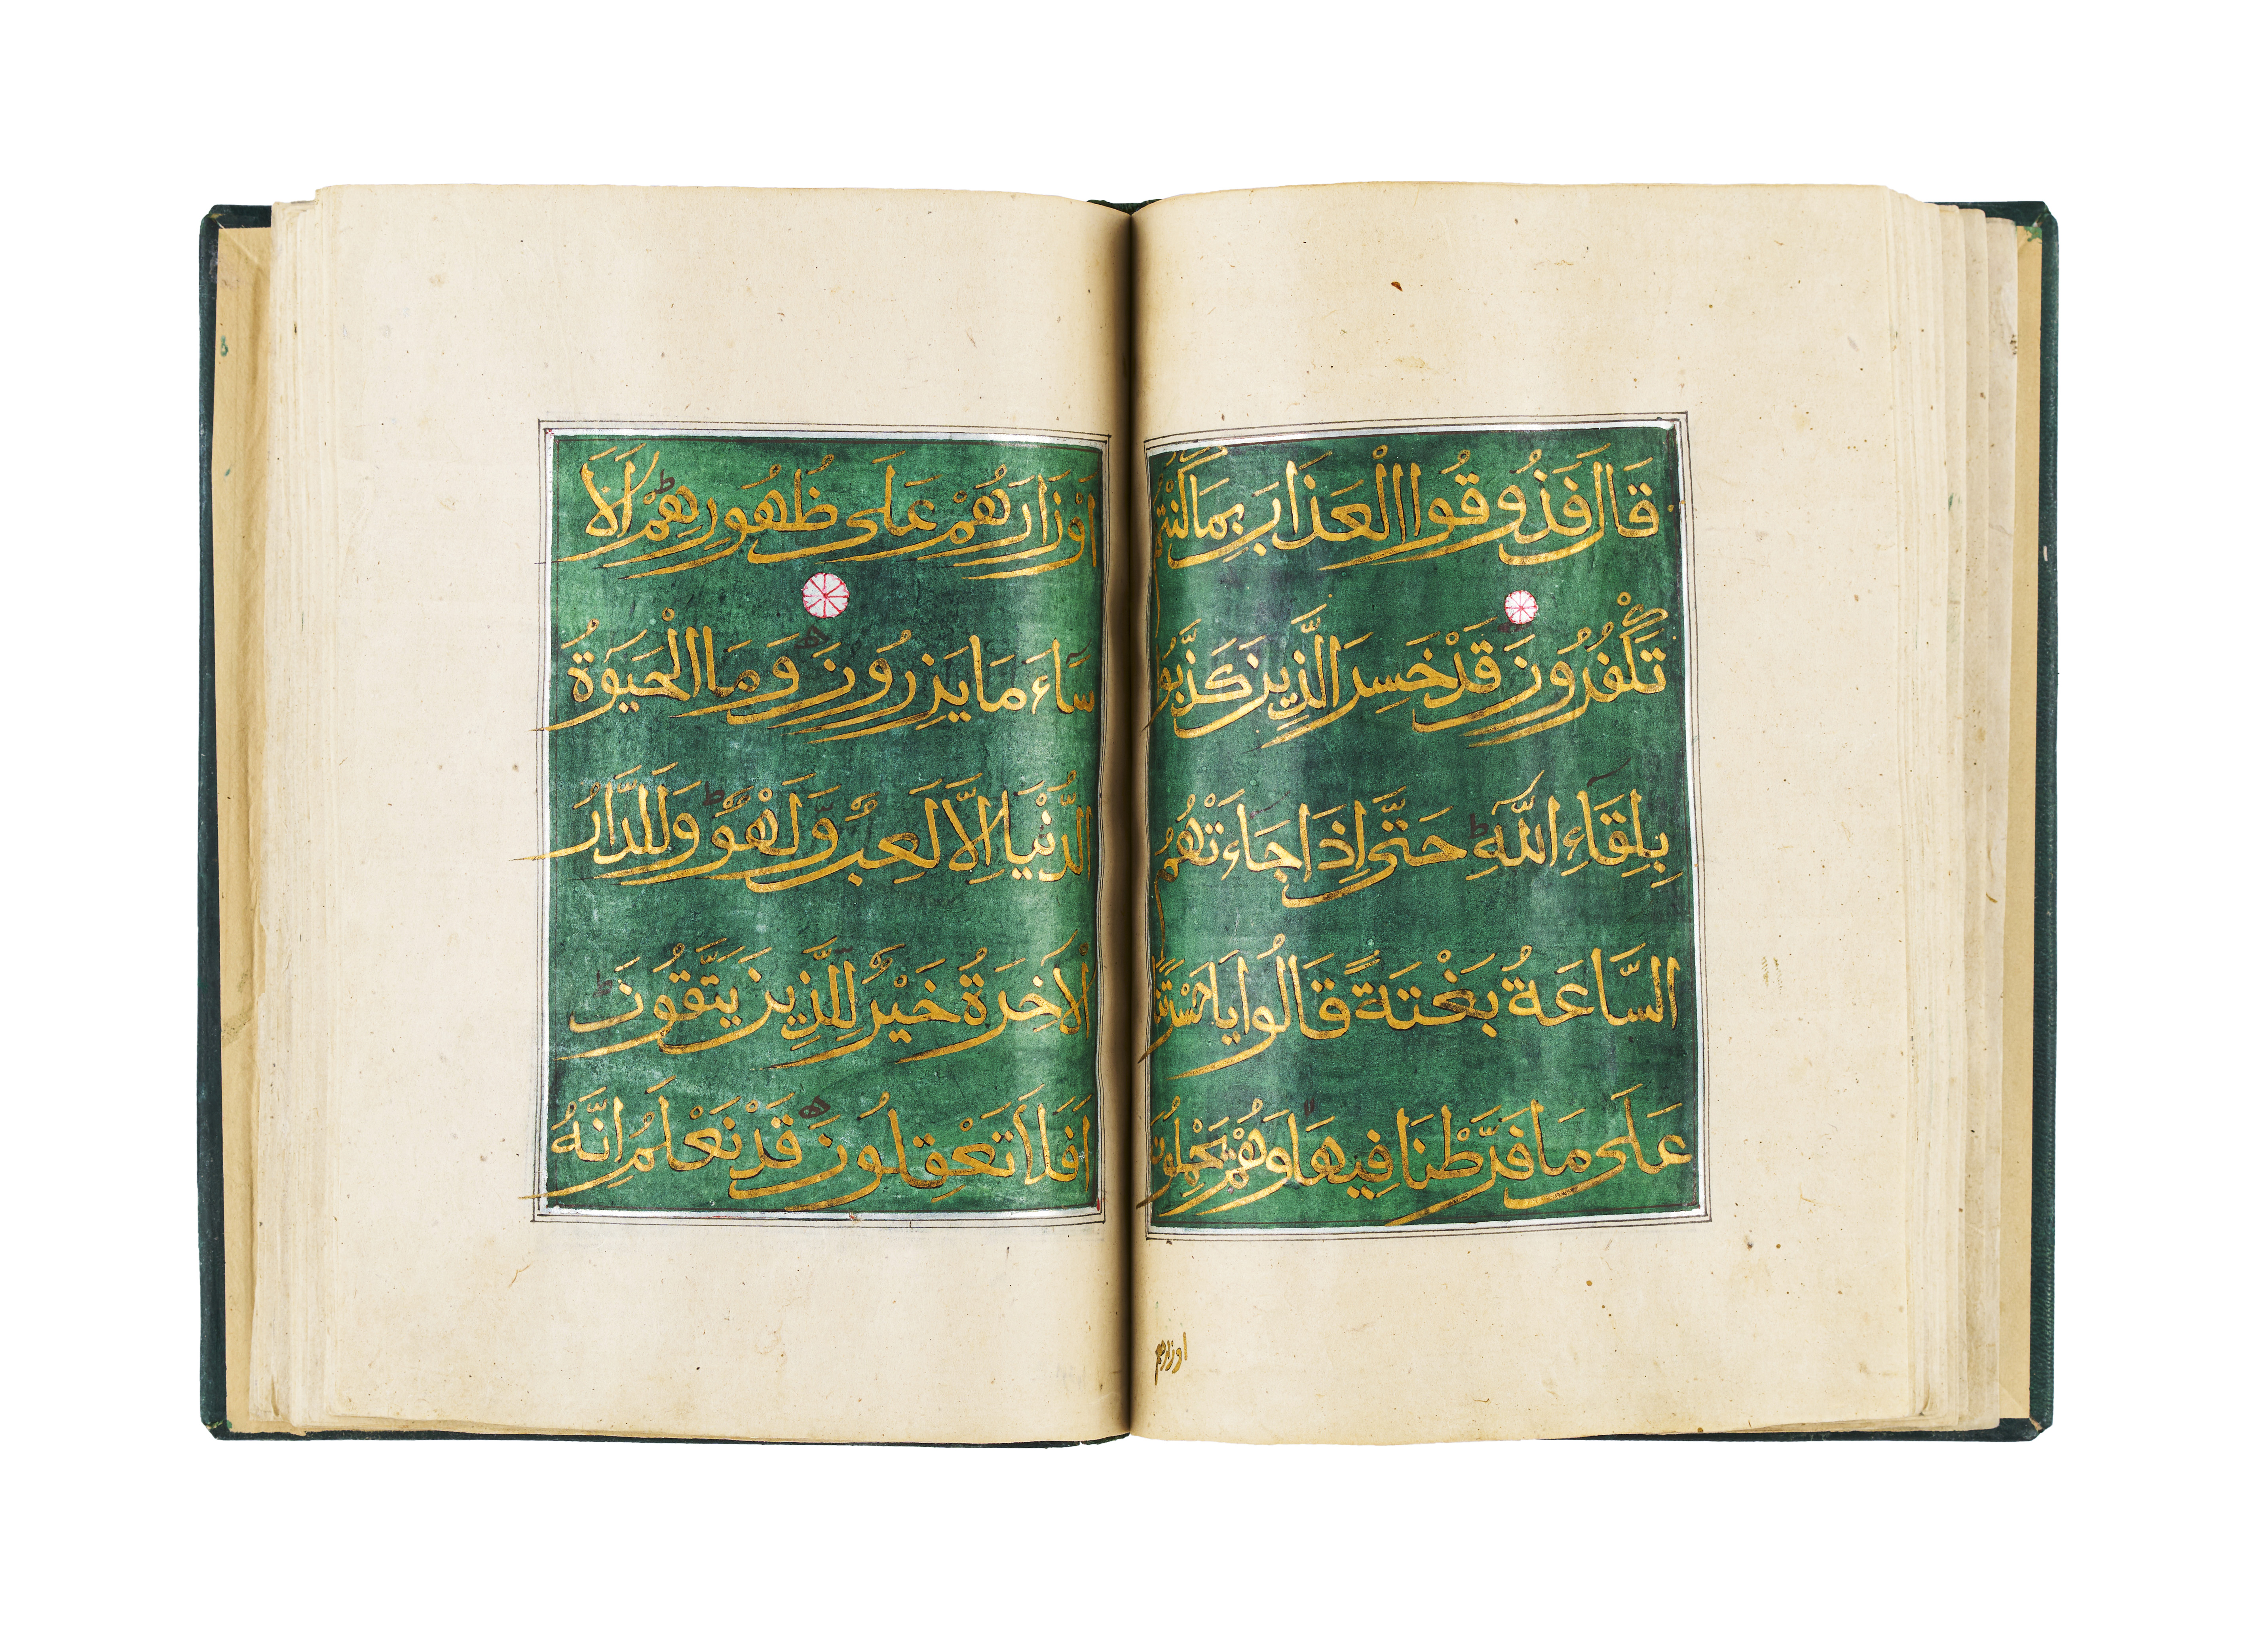 قَالَ فَذُوقُوا الْعَذَابَ بِمَا كُنْتُمْ
تَكْفُرُونَ قَدْ خَسِرَ الَّذِينَ كَذَّبُوا
بِلِقَاءِ اللَّهِ حَتَّى اِذَا جَاءَتْهُمُ
السَّاعَةُ بَغْتَةً قَالُوا يَا حَسْرَتَنَا
عَلَى مَا فَرَّطْنَا فِيهَا وَهُمْ يَحْمِلُونَ
اوزارهم
اَوْزَارَهُمْ عَلَى ظُهُورِهِمْ اَلَا
سَاءَ مَا يَزِرُونَ وَمَا الْحَيَوةُ
الدُّنْيَا اِلَّا لَعِبٌ وَلَهْوٌ وَلَلدَّارُ
الْاَخِرَةُ خَيْرٌ لِلَّذِينَ يَتَّقُونَ
اَفَلَا تَعْقِلُونَ قَدْ نَعْلَمُ اِنَّهُ